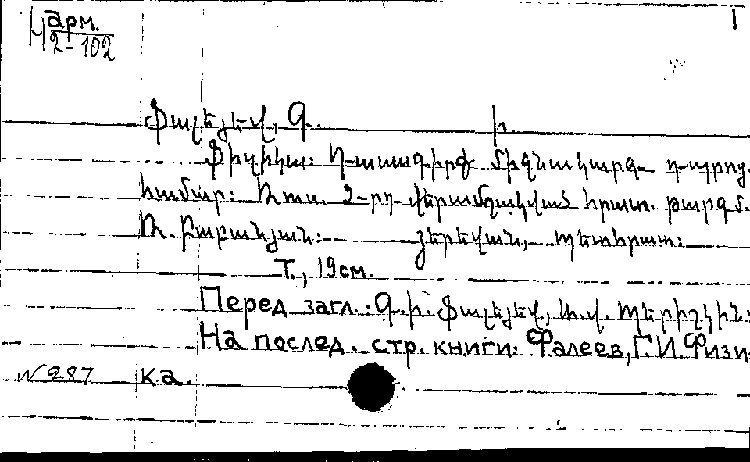 I
Կ арм.
2-102
Ֆալեյեվ, Գ. Ի.
Ֆիզիկա: Դասագիրք միջնակարգ դպրոց.
համար: Ռուս. 2-րդ վերամշակված հրատ. թարգմ.
Ռ. Բաբանյան: Յերեվան, Պետհրատ:
т., 19 см.
Перед загл.: Գ. Ի. Ֆալեյեվ, Ա. Վ. Պերիշկին:
На послед. стр. книги: Фалеев, Г. И. Физи-
N 287 ка.